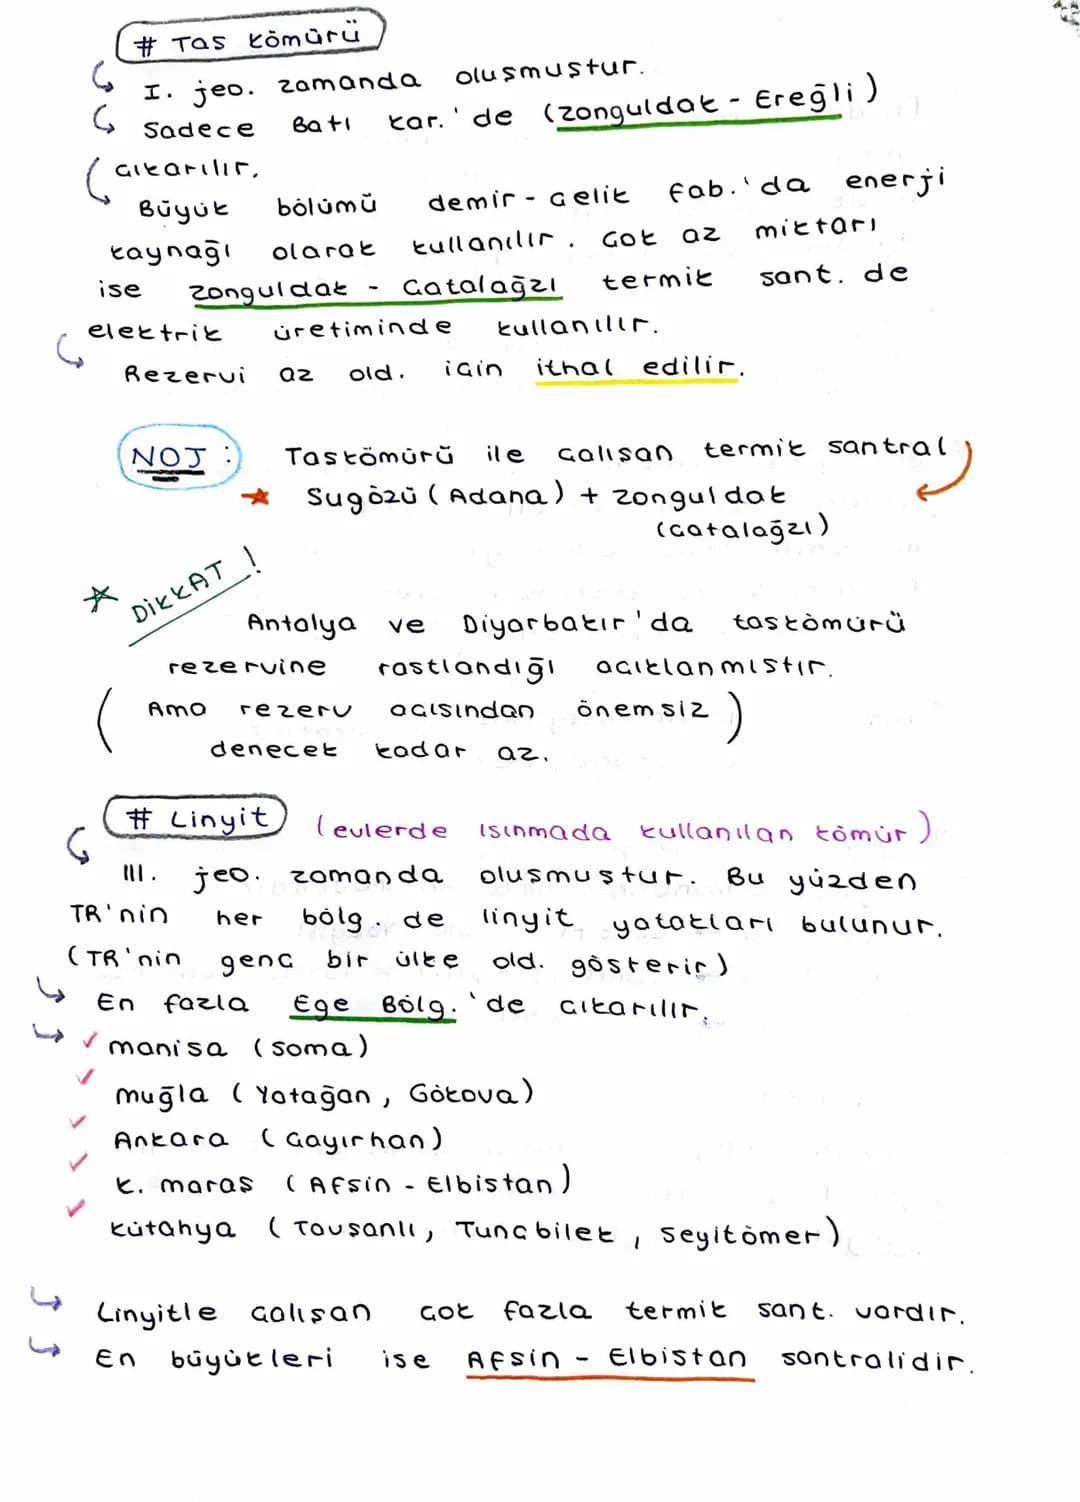 # Tas kömürü
I. jeo. zamanda oluşmuştur.
Sadece Batı kar.'de (zonguldak - Ereğli)
çıkarılır.
Büyük bölümü demir - çelik fab.'da enerji
kaynağı olarak kullanılır. Çok az miktarı
ise zonguldak - Çatalağzı termik sant. de
elektrik üretiminde kullanılır.
Rezervi az old. için ithal edilir.
NOT : Taskömürü ile çalışan termik santral
Sugözü (Adana) + zonguldak
(çatalağzı)
DİKKAT !
Antalya ve Diyarbakır'da taskömürü
rezervine rastlandığı açıklanmıstır.
( Ama rezerv açısından önemsiz )
denecek kadar az.
# Linyit (evlerde ısınmada kullanılan kömür)
III. jeo. zamanda oluşmuştur. Bu yüzden
TR'nin her bölg. de linyit yatakları bulunur.
(TR'nin genç bir ülke old. gösterir)
En fazla Ege Bölg.'de çıkarılır.
manisa (soma)
muğla (Yatağan, Gökova)
Ankara (Çayırhan)
k. maras (Afsin - Elbistan)
kütahya (Tavşanlı, Tunçbilek, seyitömer)
Linyitle çalışan çok fazla termik sant. vardır.
En büyükleri ise Afsin - Elbistan santralidir.